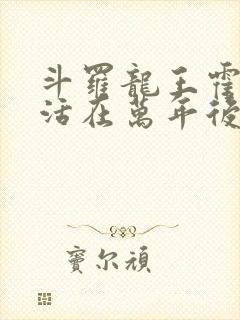 斗羅龍王霍
活在萬年後
寶尔頑